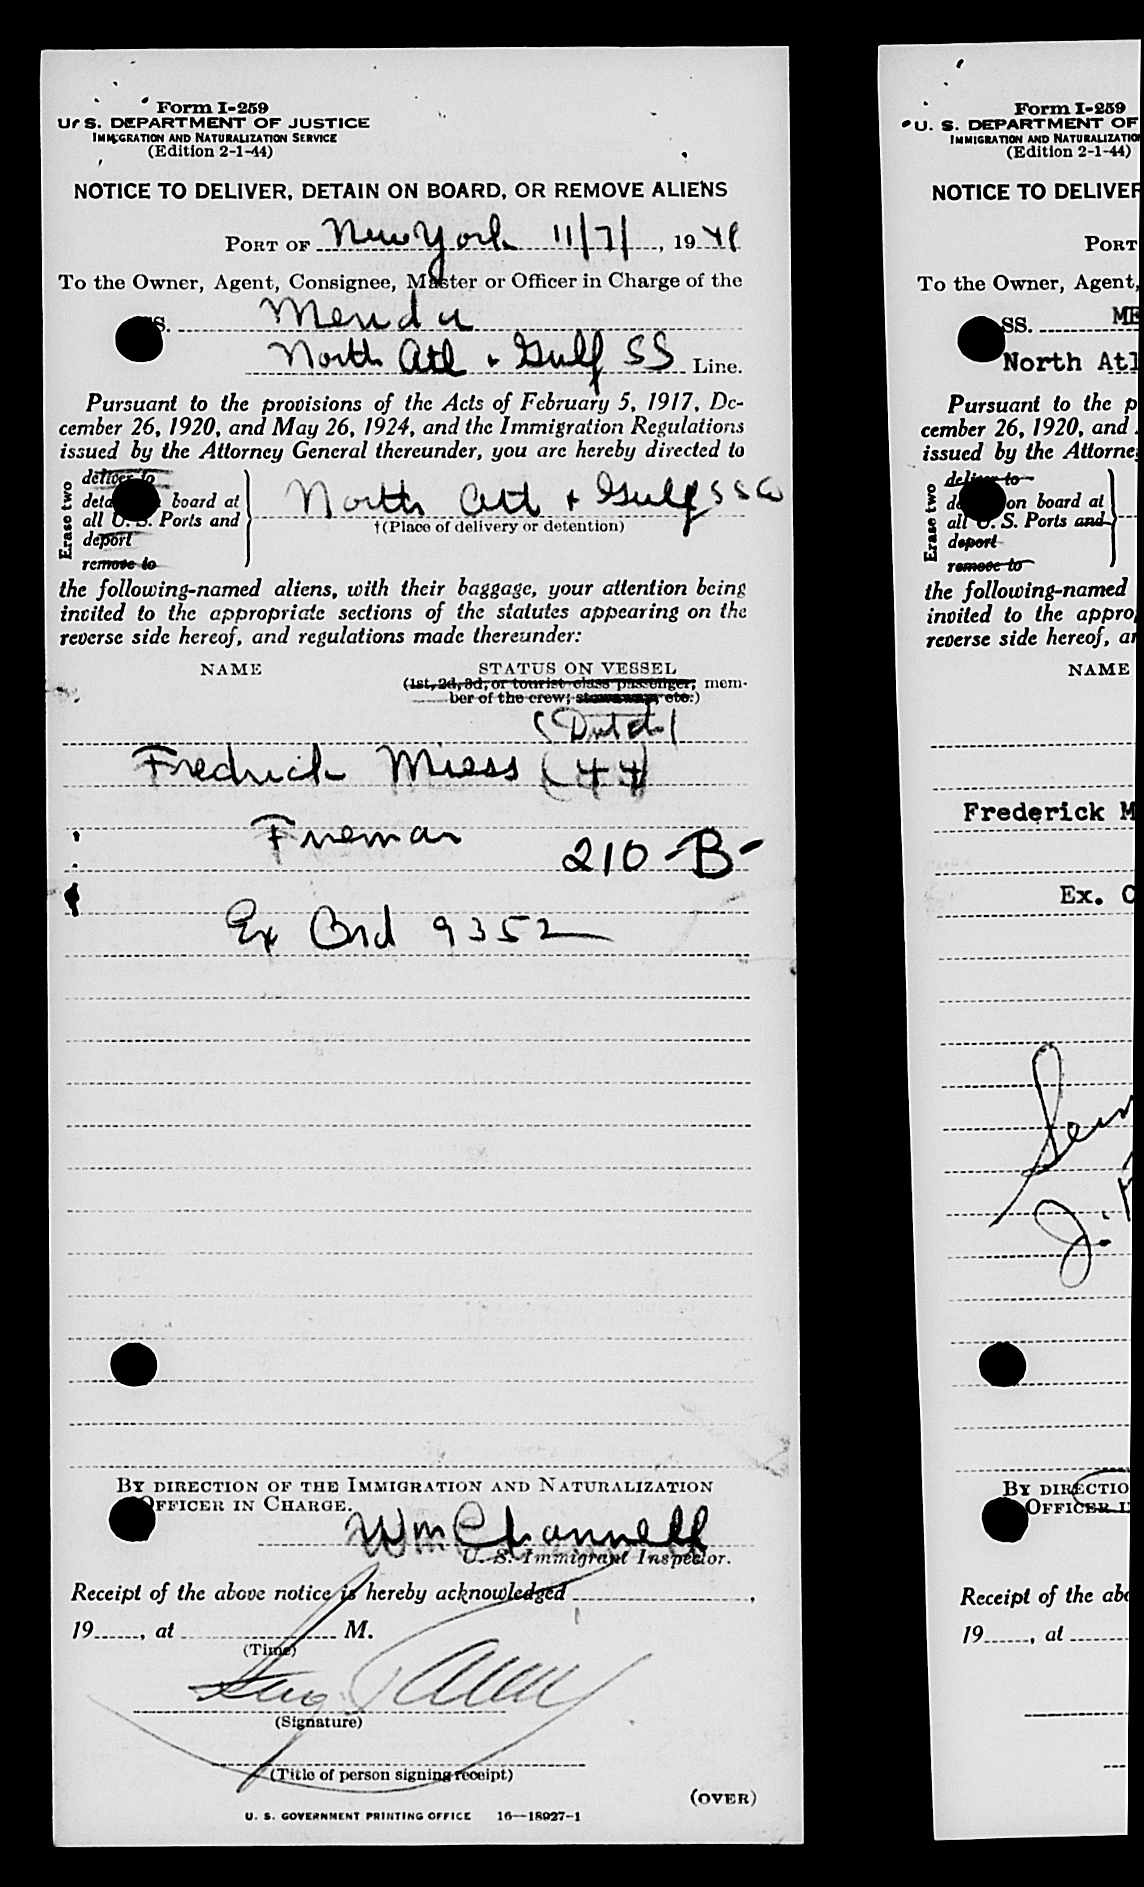 Form I-259
U. S. DEPARTMENT OF JUSTICE
IMMIGRATION AND NATURALIZATION SERVICE
(Edition 2-1-44)
NOTICE TO DELIVER, DETAIN ON BOARD, OR REMOVE ALIENS
PORT OF New York 11/7/, 19
To the Owner, Agent, Consignee, Master or Officer in Charge of the
SS.
North Atl + Gulf SS Line.
Pursuant to the provisions of the Acts of February 5, 1917, De-
cember 26, 1920, and May 26, 1924, and the Immigration Regulations
issued by the Attorney General thereunder, you are hereby directed to
Erase two
deliver to
board at
all U. S. Ports and
deport
remove to
North Atl + Gulf S S Co
†(Place of delivery or detention)
the following-named aliens, with their baggage, your attention being
invited to the appropriate sections of the statutes appearing on the
reverse side hereof, and regulations made thereunder:
NAME STATUS ON VESSEL
(1st, 2d, 3d, or tourist class passenger, mem-
ber of the crew; stowaway, etc.)
(Dutch)
Fredrick Miess (44)
Fireman
210-B-
Ex Brd 9352
BY DIRECTION OF THE IMMIGRATION AND NATURALIZATION
OFFICER IN CHARGE.
U. S. Immigrant Inspector.
Receipt of the above notice is hereby acknowledged ,
19 , at M.
(Time)
(Signature)
(Title of person signing receipt)
(OVER)
U. S. GOVERNMENT PRINTING OFFICE 16—18927-1
Form I-259
U. S. DEPARTMENT OF
IMMIGRATION AND NATURALIZATIO
(Edition 2-1-44)
NOTICE TO DELIVER
PORT
To the Owner, Agent,
SS. ME
North Atl
Pursuant to the p
cember 26, 1920, and
issued by the Attorney
Erase two
deliver to
on board at
all U. S. Ports and
deport
remove to
the following-named
invited to the appro
reverse side hereof, an
NAME
Frederick M
Ex. C
BY DIRECTIO
OFFICER I
Receipt of the abo
19 , at